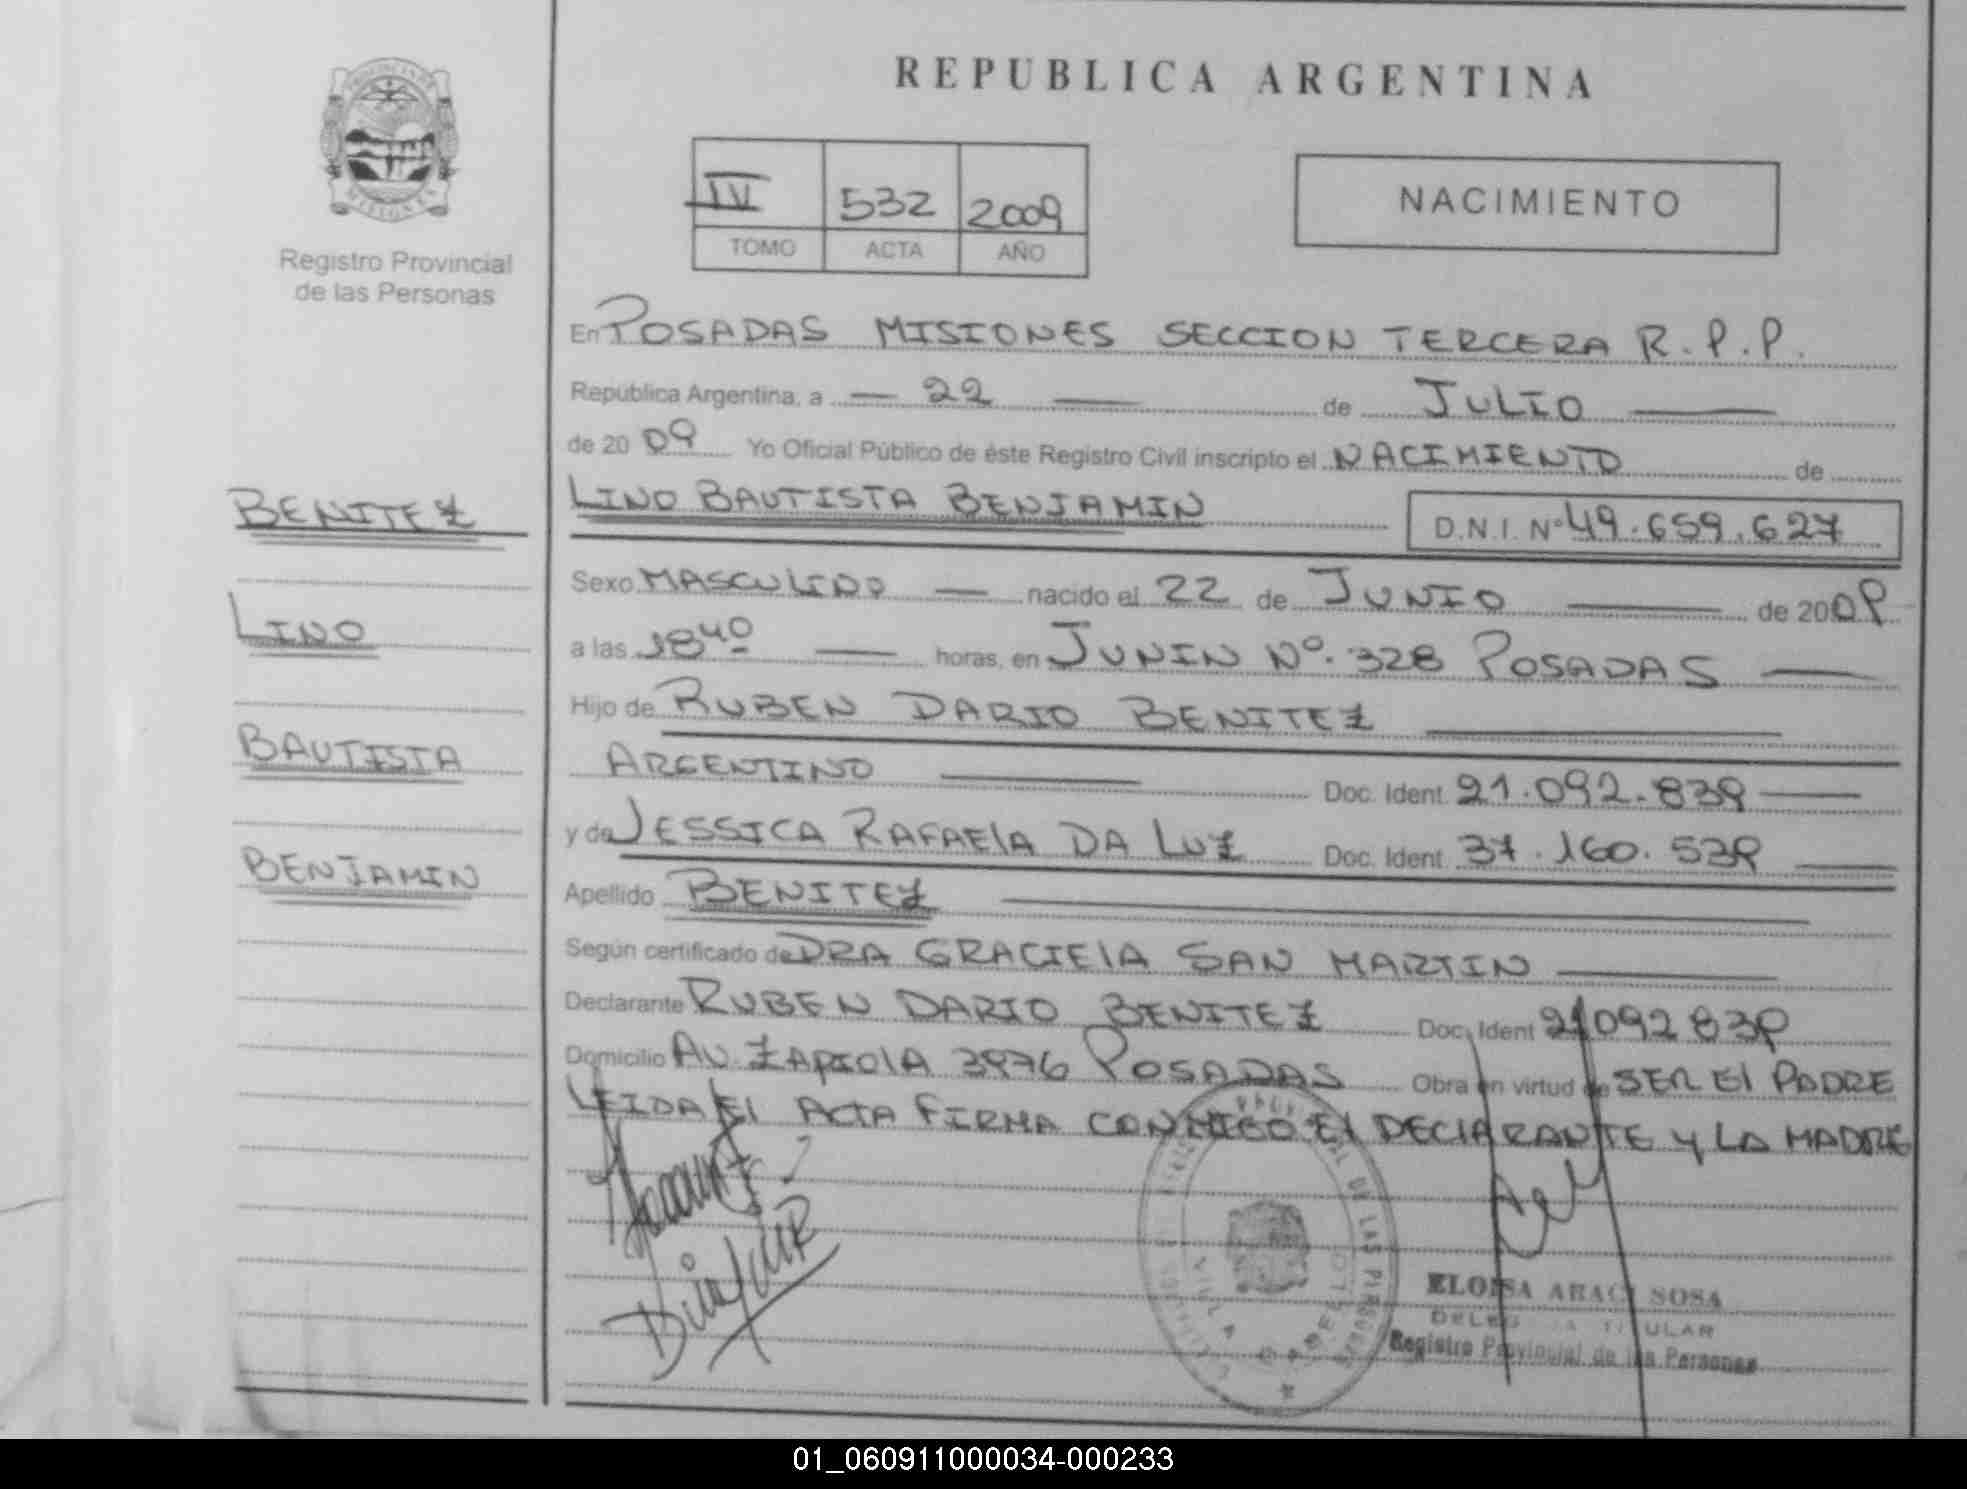 REPUBLICA ARGENTINA
PROVINCIA DE MISIONES
Registro Provincial
de las Personas
IV 532 2009
TOMO ACTA AÑO
NACIMIENTO
En POSADAS MISIONES SECCION TERCERA R.P.P.
República Argentina, a — 22 — de JULIO —
de 2009 Yo Oficial Público de éste Registro Civil inscripto el NACIMIENTO de
LINO BAUTISTA BENJAMIN D.N.I. Nº 49.659.627
BENITEZ
LINO
BAUTISTA
BENJAMIN
Sexo MASCULINO — nacido el 22 de JUNIO — de 2009
a las 18 40 — horas, en JUNIN Nº. 328 POSADAS —
Hijo de RUBEN DARIO BENITEZ —
ARGENTINO — Doc. Ident. 21.092.839 —
y de JESSICA RAFAElA DA LUZ Doc. Ident. 37.160.539 —
Apellido BENITEZ —
Según certificado de DRA GRACIElA SAN MARTIN —
Declarante RUBEN DARIO BENITEZ Doc. Ident 21092839
Domicilio AV. ZAPIOlA 3976 POSADAS Obra en virtud de SER El PADRE
LEIDA El ACTA FIRMA CONMIGO El DEClARANTE Y LA MADRE
ELOISA ARACI SOSA
DELEGADA TITULAR
Registro Provincial de las Personas
VILLA CABELLO
01_060911000034-000233